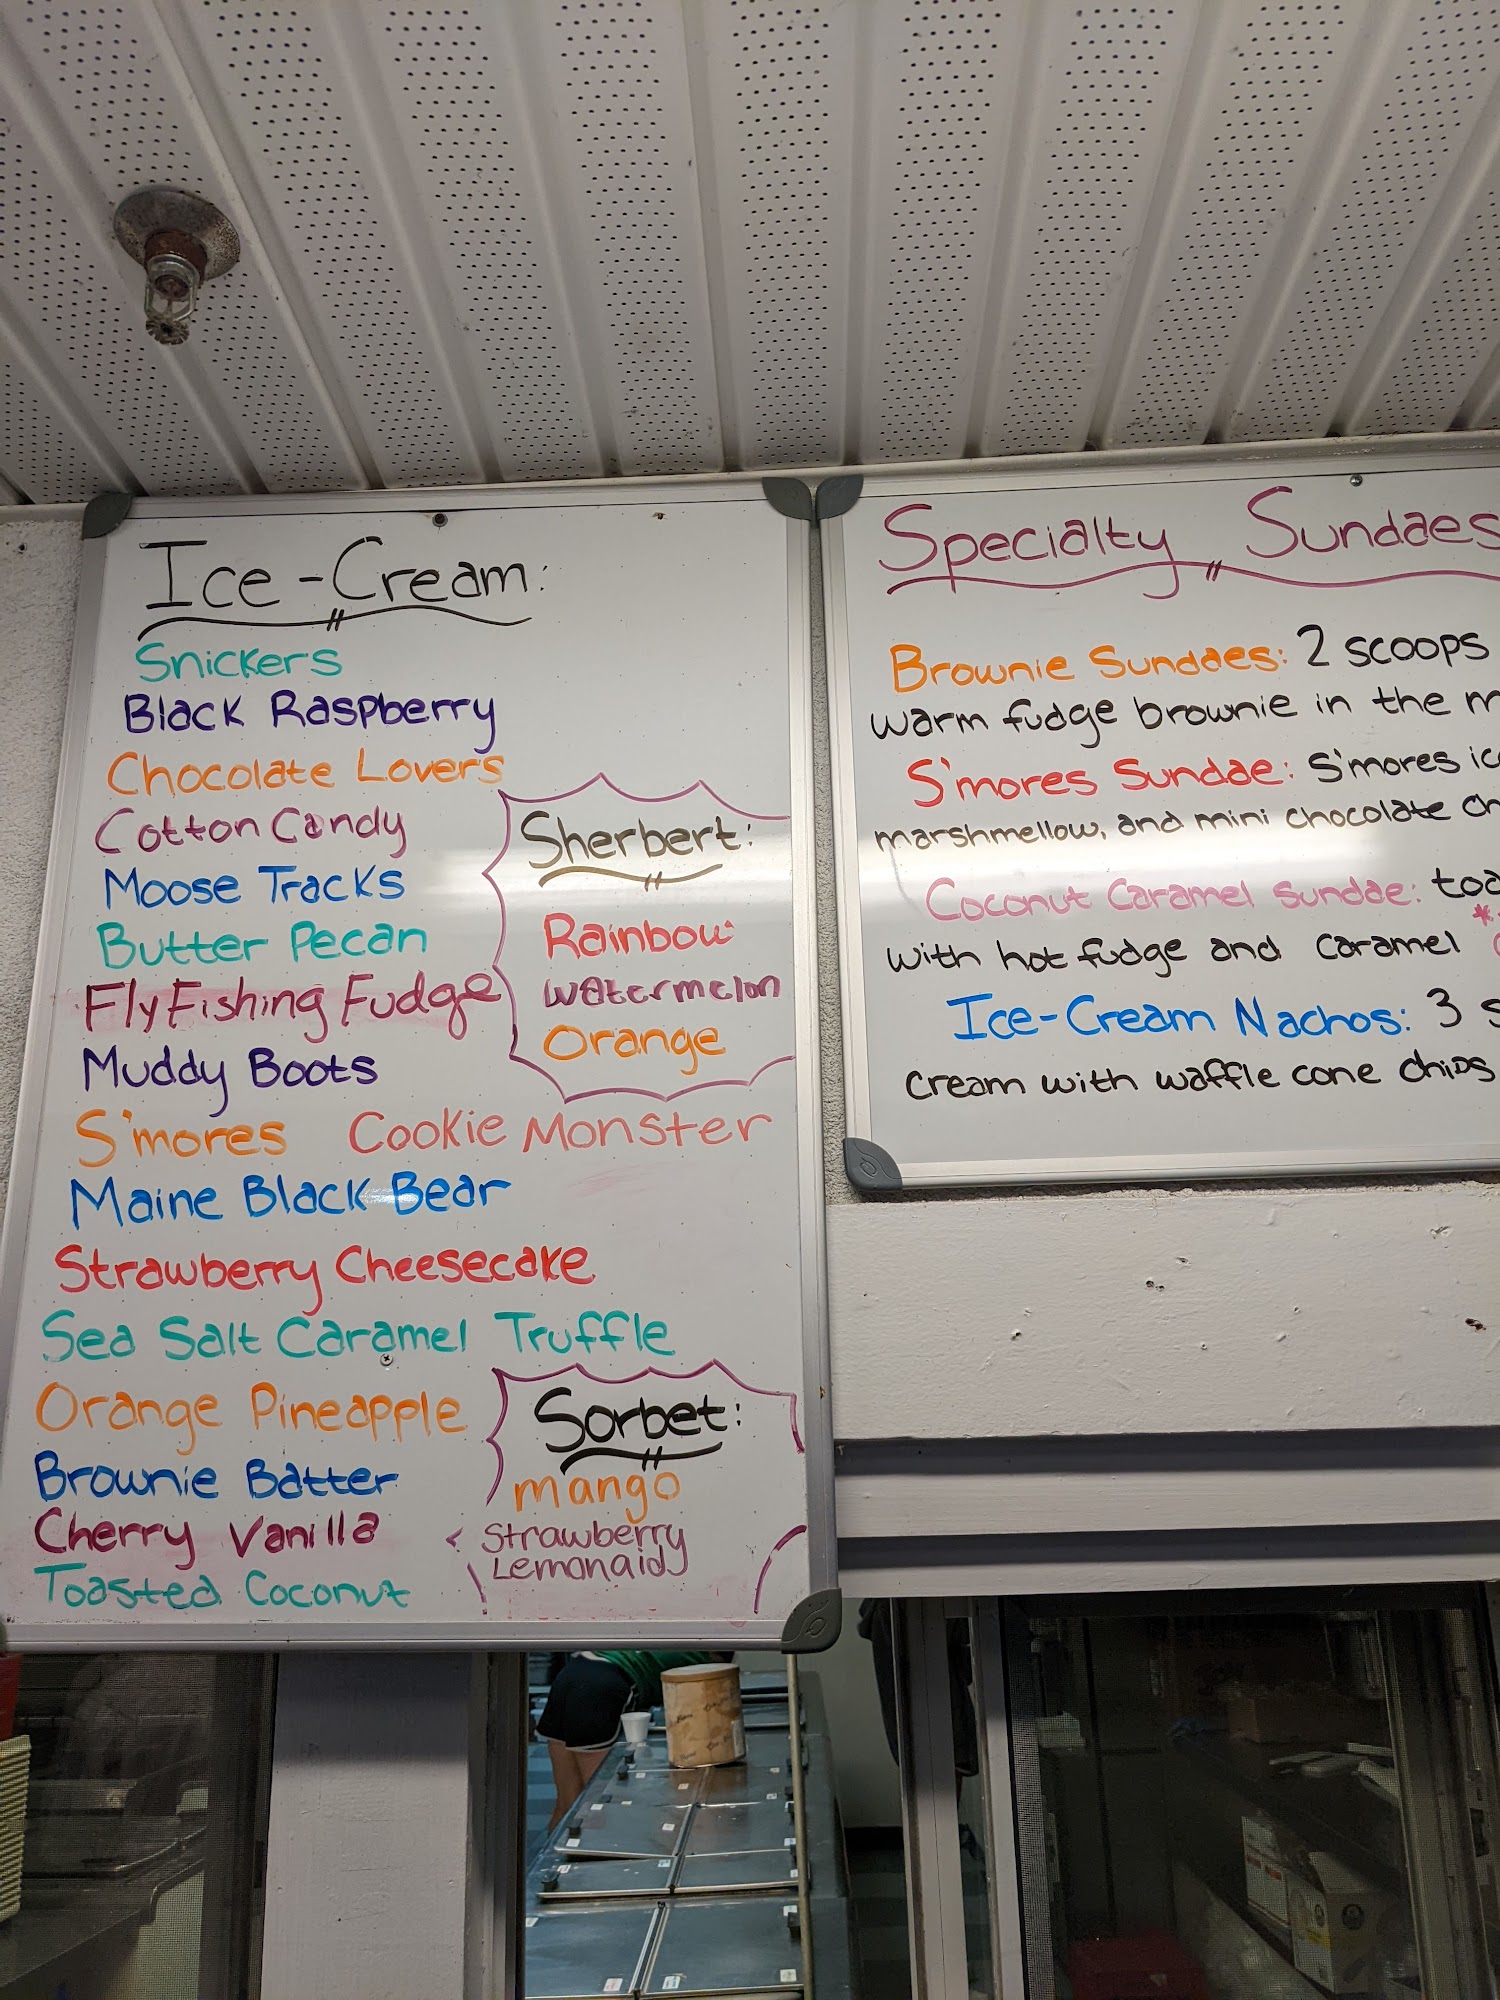 Ice-Cream:
Snickers
Black Raspberry
Chocolate Lovers
Cotton Candy
Moose Tracks
Butter Pecan
Fly Fishing Fudge
Muddy Boots
S'mores Cookie Monster
Maine Black Bear
Strawberry Cheesecake
Sea Salt Caramel Truffle
Orange Pineapple
Brownie Batter
Cherry Vanilla
Toasted Coconut
Sherbert:
Rainbow
Watermelon
Orange
Sorbet:
mango
Strawberry
Lemonaid
Specialty Sundaes
Brownie Sundaes: 2 scoops
warm fudge brownie in the m
S'mores Sundae: S'mores ic
marshmellow, and mini chocolate ch
Coconut Caramel Sundae: toa
with hot fudge and caramel *
Ice-Cream Nachos: 3 s
cream with waffle cone chips